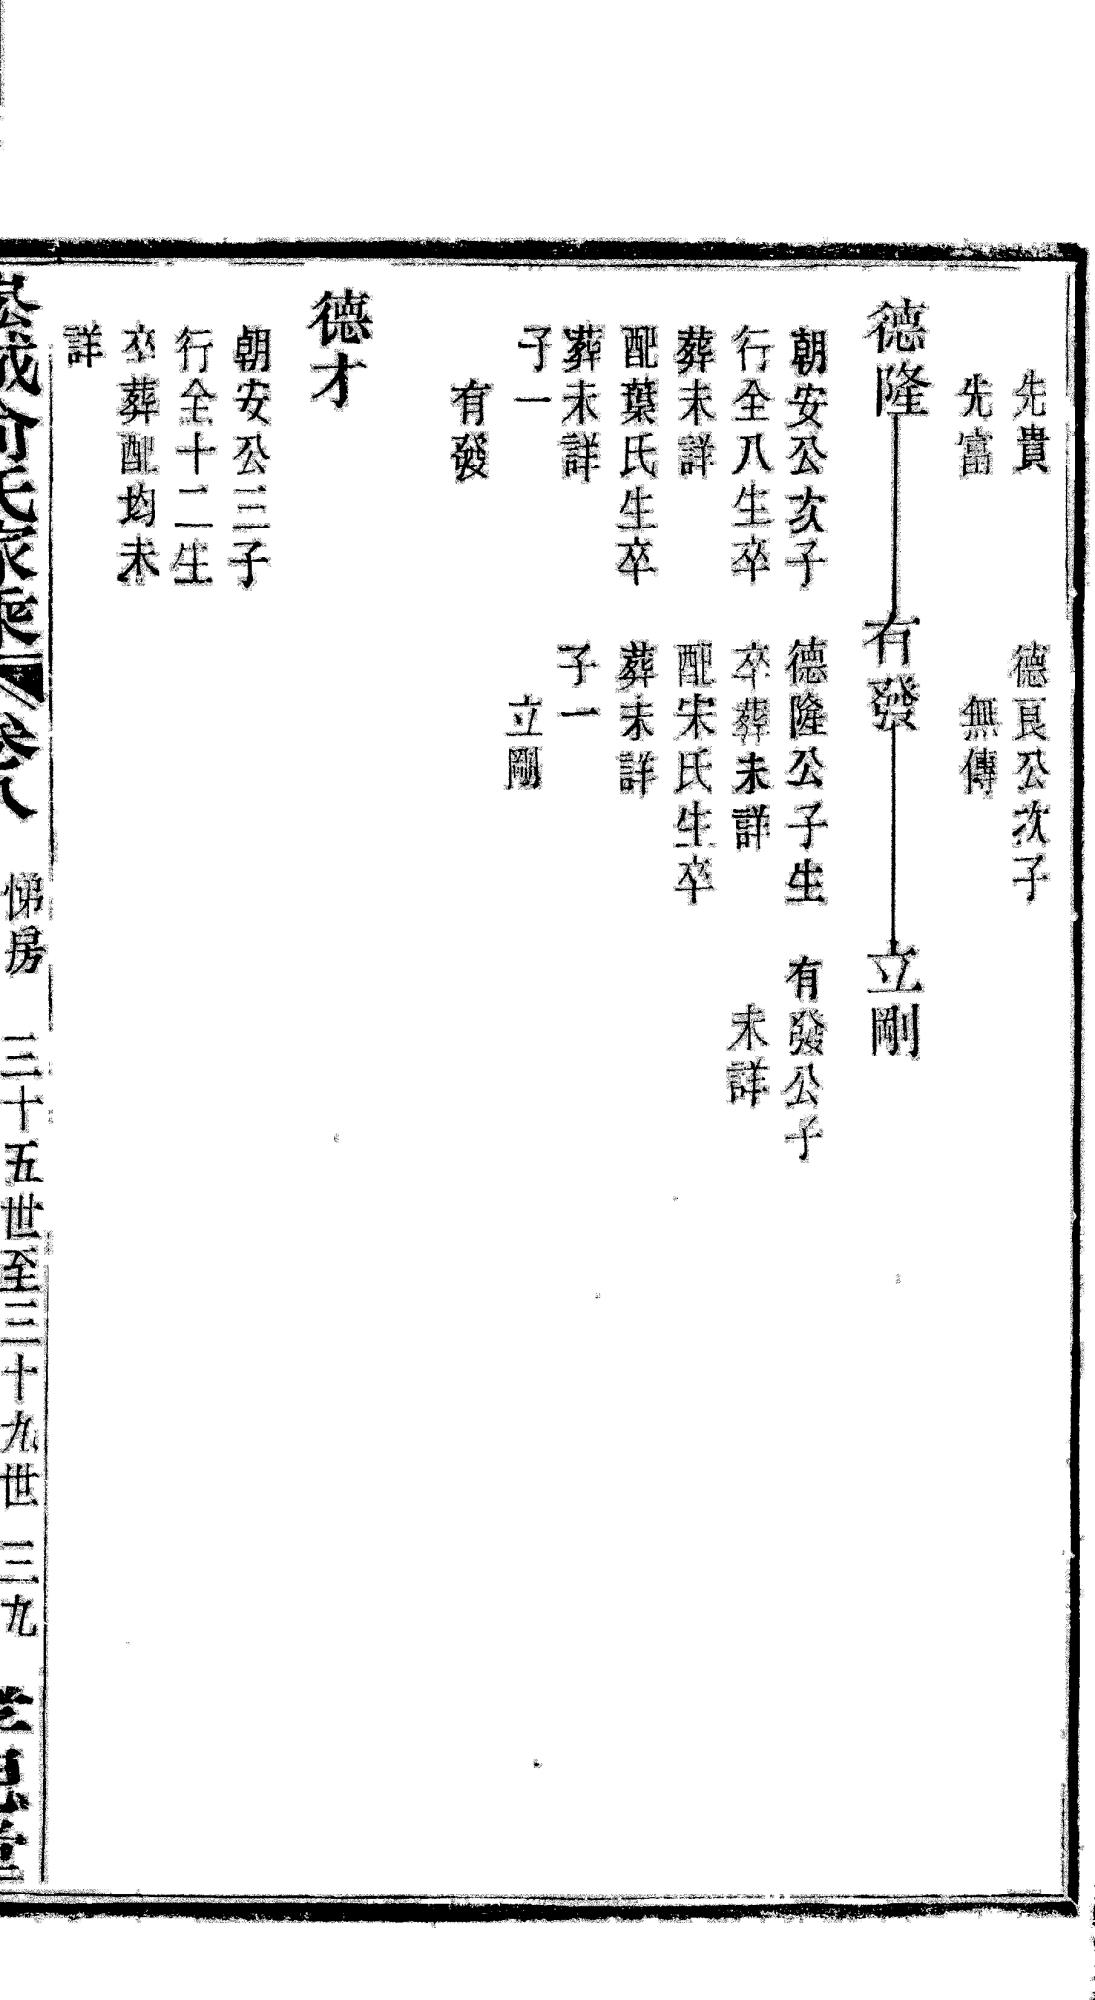 先貴
德良公次子
先富
無傳
德隆
有發
立剛
朝安公次子
德隆公子生
有發公子
行全八生卒
卒葬未詳
未詳
葬未詳
配宋氏生卒
配葉氏生卒
葬未詳
葬未詳
子一
子一
立剛
有發
德才
朝安公三子
行全十二生
卒葬配均未
詳
俞氏家乘
卷八
悌房
三十五世至三十九世
三九